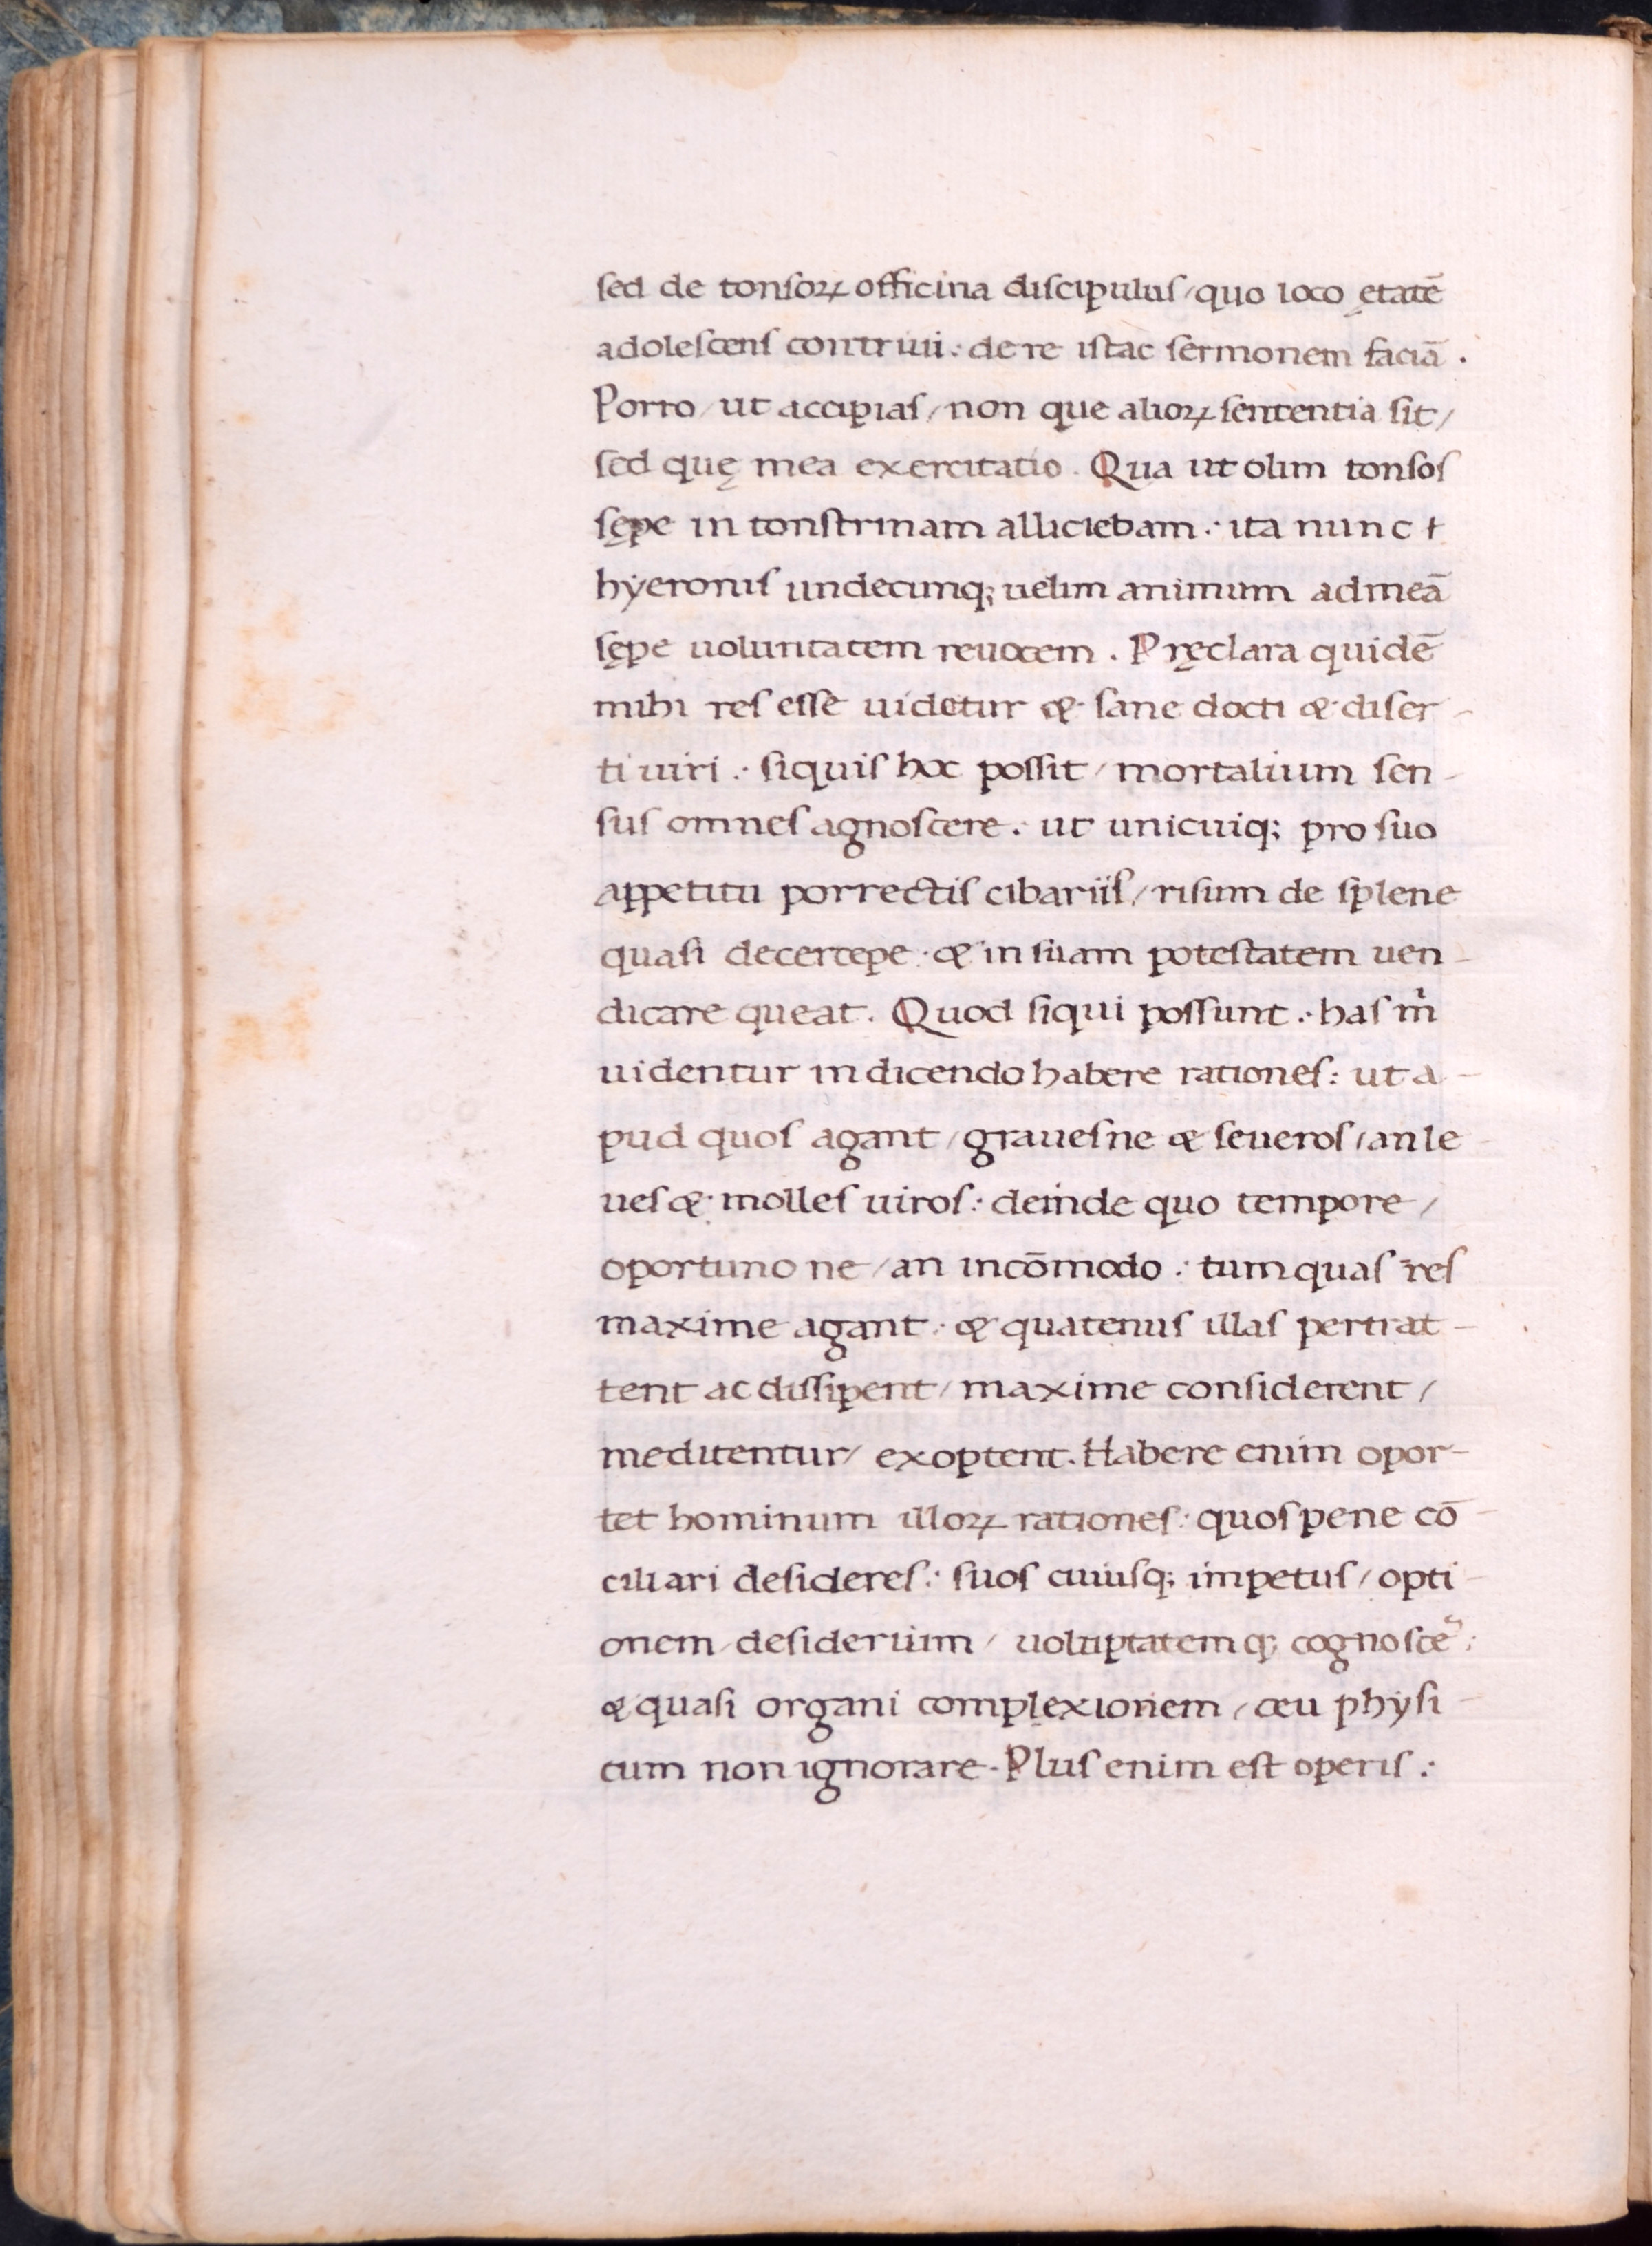 sed de tonsoꝝ officina discipulus / quo loco ętatē
adolescens contriui .· de re istac sermonem faciā .
Porro / ut accipias / non que alioꝝ sententia sit /
sed quę mea exercitatio . Qua ut olim tonsos
sępe in tonstrinam alliciebam .· ita nunc t
hÿeronis undecunq; uelim animum ad meā
sępe uoluntatem reuocem . Pręclara quidē
mihi res esse uidetur & sane docti & diser -
ti uiri .· siquis hoc possit / mortalium sen -
sus omnes agnoscere .· ut unicuiq; pro suo
appetitu porrectis cibariis / risum de splene
quasi decertepe .· & in suam potestatem uen -
dicare queat . Quod siqui possunt .· has m̀
uidentur in dicendo habere rationes : ut a -
pud quos agant / grauesne & seueros / an le -
ues & molles uiros .· deinde quo tempore /
oportuno ne / an incōmodo .· tum quas res
maxime agant .· & quatenus illas pertrat -
tent ac dissipent / maxime considerent /
meditentur / exoptent . Habere enim opor -
tet hominum illoꝝ rationes .· quos pene cō -
ciliari desideres .· suos cuiusq; impetus / opti -
onem / desiderium / uoluptatemq; cognoscẽ :
& quasi organi complexionem / ceu phÿsi -
cum non ignorare . Plus enim est operis .·